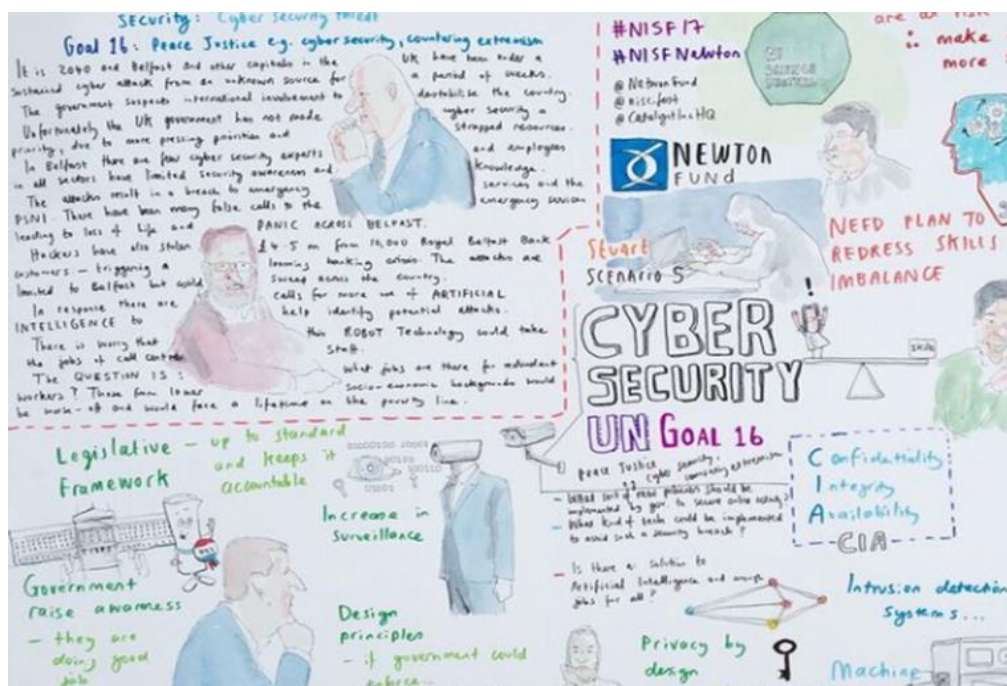 SECURITY: Cyber security threat
Goal 16: Peace Justice e.g. cyber security, countering extremism
It is 2040 and Belfast and other capitals in the UK have been under a
sustained cyber attack from an unknown source for a period of weeks.
The government suspects international involvement to destabilise the country.
Unfortunately the UK government has not made cyber security a
priority, due to more pressing priorities and strapped resources.
In Belfast there are few cyber security experts and employees
in all sectors have limited security awareness and knowledge.
The attacks result in a breach to emergency services and the
PSNI. There have been many false calls to the emergency services
leading to loss of life and PANIC ACROSS BELFAST.
Hackers have also stolen £4.5 m from 10,000 Royal Belfast Bank
customers - triggering a looming banking crisis. The attacks are
limited to Belfast but could spread across the country.
In response there are calls for more use of ARTIFICIAL
INTELLIGENCE to help identify potential attacks.
There is worry that this ROBOT Technology could take
the jobs of call centre staff.
The QUESTION IS: What jobs are there for redundant
workers? Those from lower socio-economic backgrounds would
be worse-off and would face a lifetime on the poverty line.
#NISF17
#NISFNewton
@NewtonFund
@niscifest
@CatalystIncHQ
NI
SCIENCE
FESTIVAL
NEWTON
FUND
are at risk
∴ make
more
NEED PLAN TO
REDRESS SKILLS
IMBALANCE
Stuart
SCENARIO 5
CYBER
SECURITY
UN GOAL 16
!
Peace Justice
cyber security,
countering extremism
- What sort of new policies should be
implemented by gov to secure online activity?
- What kind of tech could be implemented
to avoid such a security breach?
- Is there a solution to
Artificial Intelligence and enough
jobs for all?
Confidentiality
Integrity
Availability
CIA
Legislative - up to standard
Framework and keeps it
accountable
Increase in
Surveillance
Government
raise awareness
- they are
doing good
job
Design
principles
- if government could
enforce...
Privacy by
design
Intrusion detection
Systems...
Machine